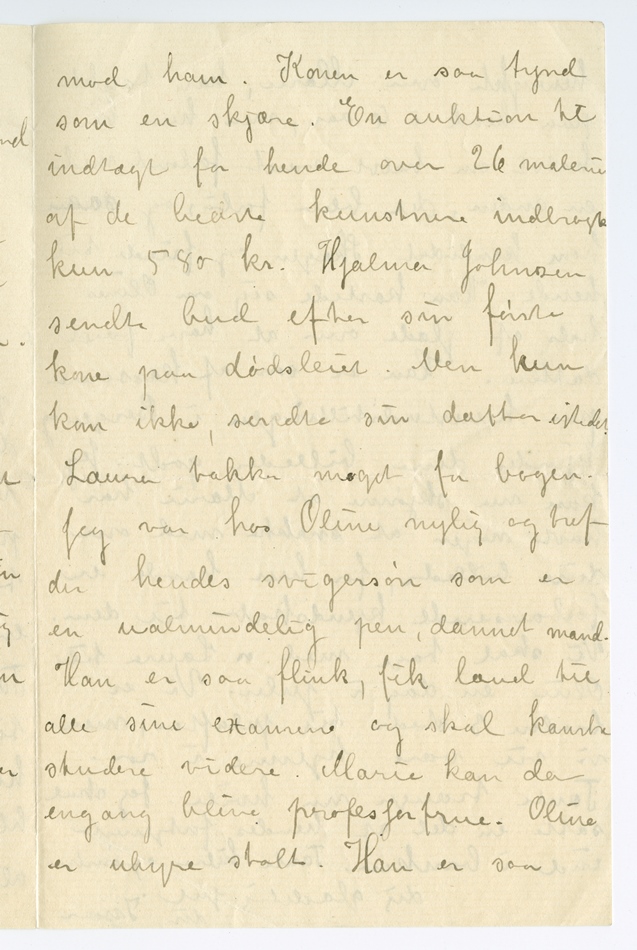 mod ham. Konen er saa tynd
som en skjære. En auktion til
indtægt for hende over 26 maleri
af de bedste kunstnere indbragte
kun 580 kr. Hjalmar Johnsen
sendte bud efter sin første
kone paa dødsleiet. Men hun
kom ikke, sendte sin datter istedet
Laura takker meget for bogen.
Jeg var hos Oline nylig og traf
der hendes svigersøn som er
en ualmindelig pen, dannet mand.
Han er saa flink, fik laud til
alle sine examene og skal kanske
studere videre. Marie kan da
engang blive professorfrue. Oline
er uhyre stolt. Han er saa